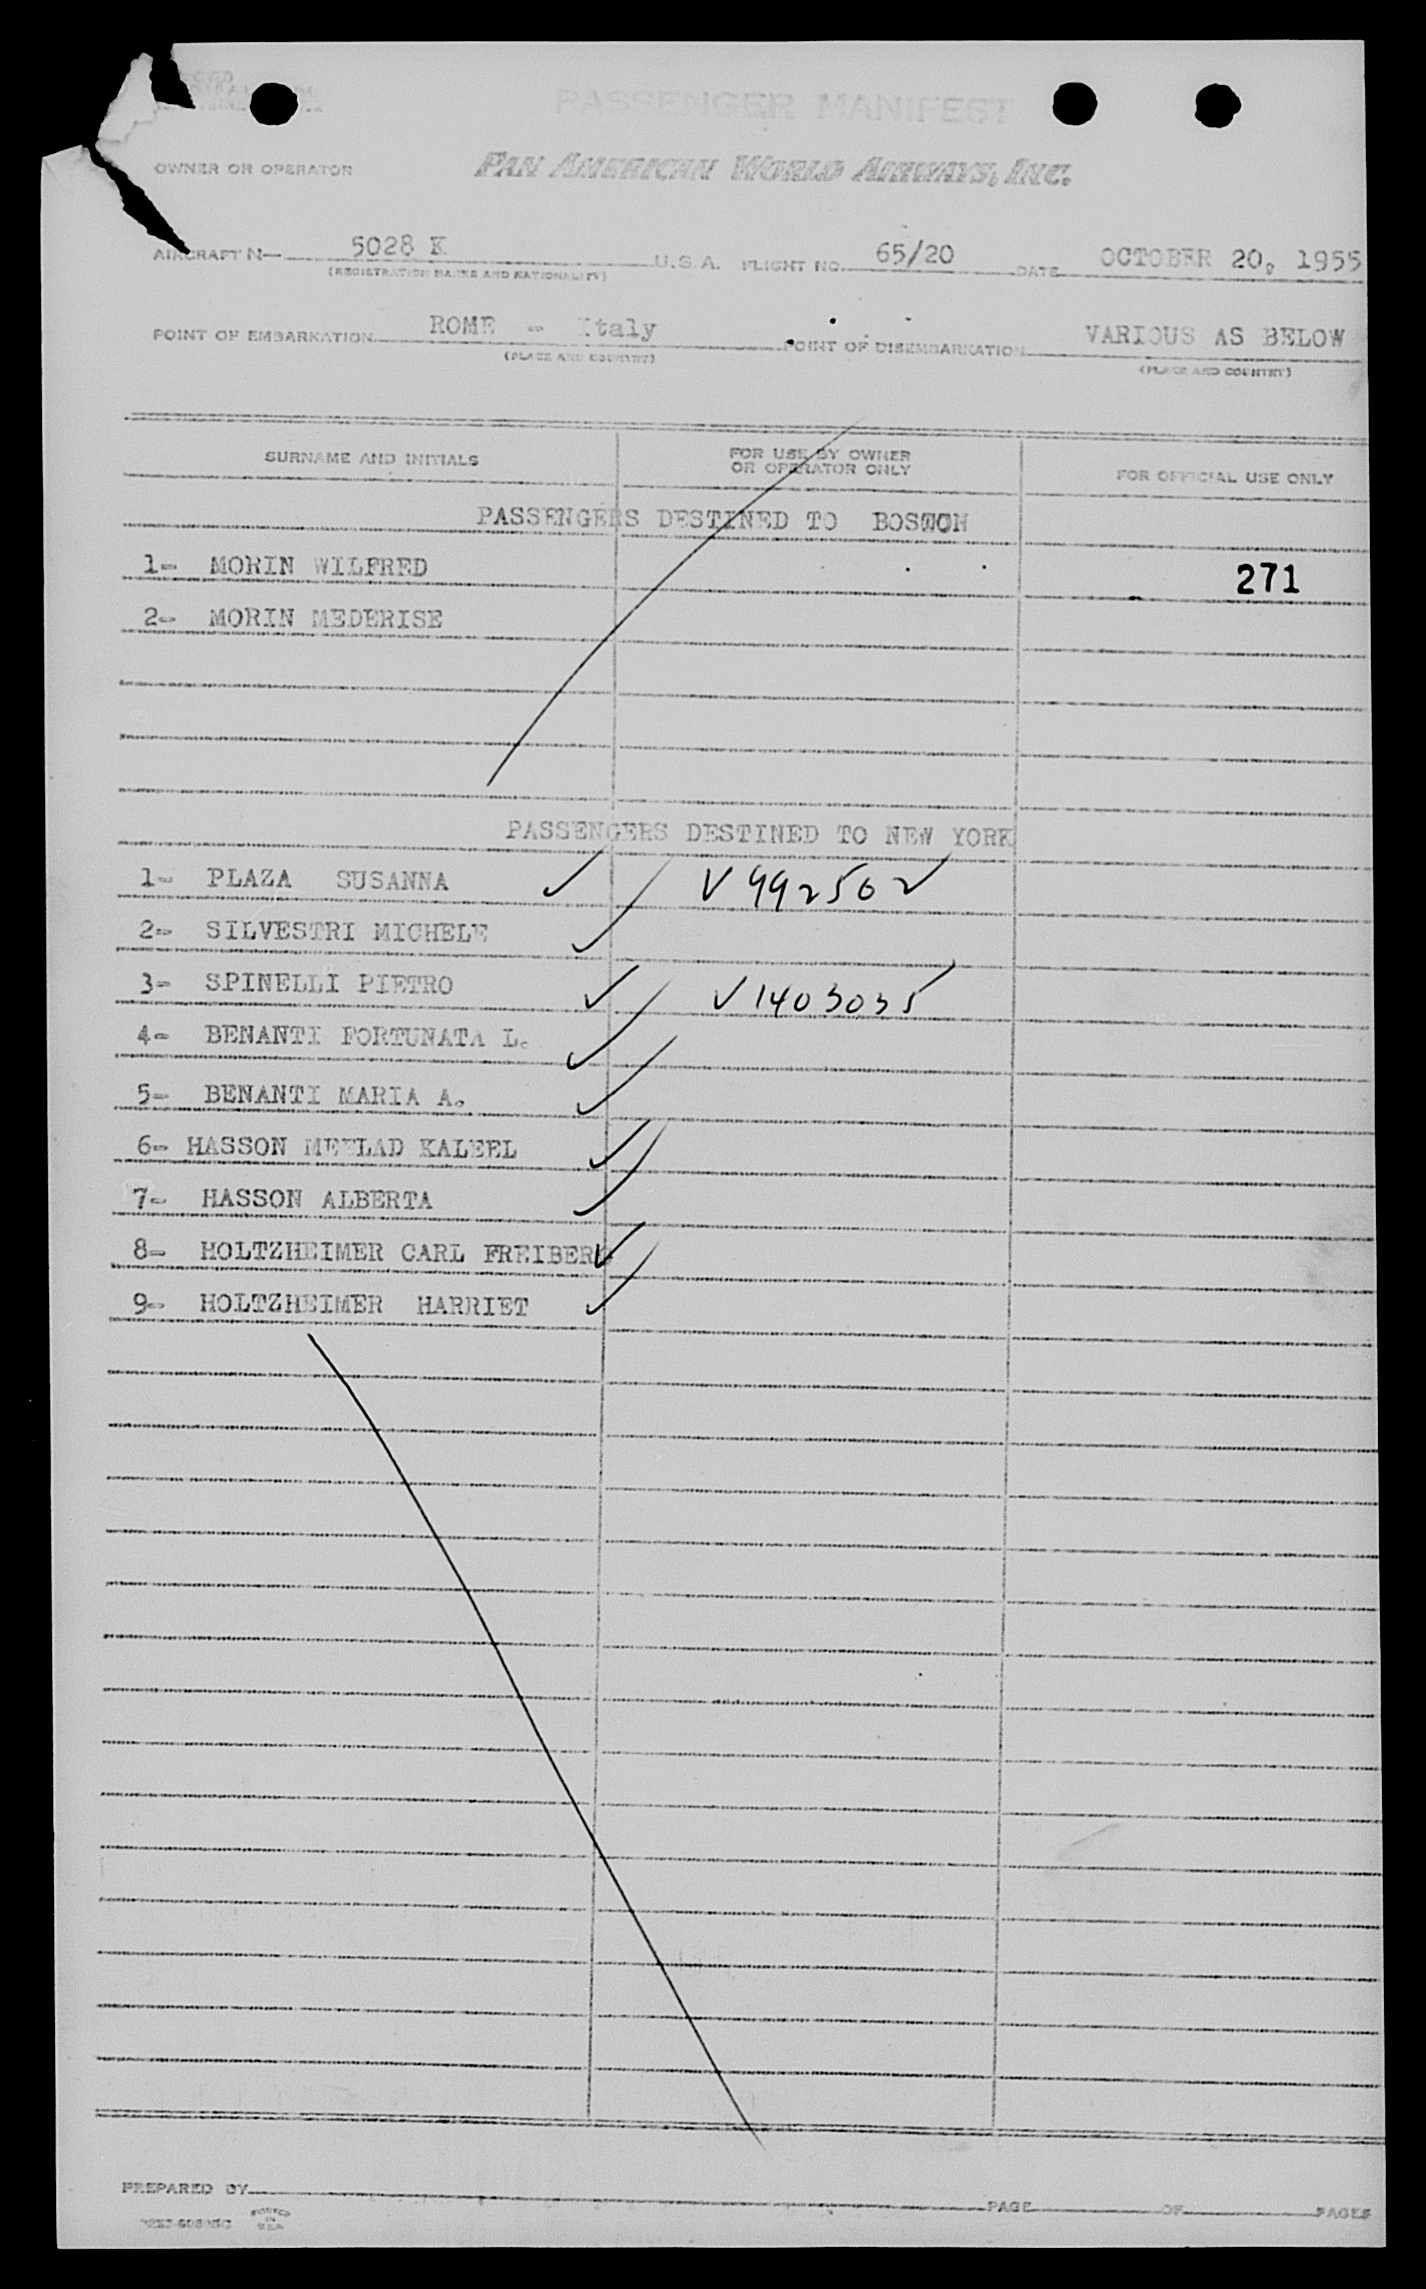 PASSENGER MANIFEST
OWNER OR OPERATOR PAN AMERICAN WORLD AIRWAYS, INC.
AIRCRAFT N— 5028 K U.S.A. FLIGHT NO. 65/20 DATE OCTOBER 20, 1955
(REGISTRATION MARKS AND NATIONALITY)
POINT OF EMBARKATION ROME - Italy POINT OF DISEMBARKATION VARIOUS AS BELOW
(PLACE AND COUNTRY) (PLACE AND COUNTRY)
SURNAME AND INITIALS FOR USE BY OWNER OR OPERATOR ONLY FOR OFFICIAL USE ONLY
PASSENGERS DESTINED TO BOSTON
1- MORIN WILFRED 271
2- MORIN MEDERISE
PASSENGERS DESTINED TO NEW YORK
1- PLAZA SUSANNA ✓ V 992502
2- SILVESTRI MICHELE ✓
3- SPINELLI PIETRO ✓ V 1403035
4- BENANTI FORTUNATA L. ✓
5- BENANTI MARIA A. ✓
6- HASSON MEELAD KALEEL ✓
7- HASSON ALBERTA ✓
8- HOLTZHEIMER CARL FREIBERG ✓
9- HOLTZHEIMER HARRIET ✓
PREPARED BY PAGE OF PAGES
PRINTED IN U.S.A.